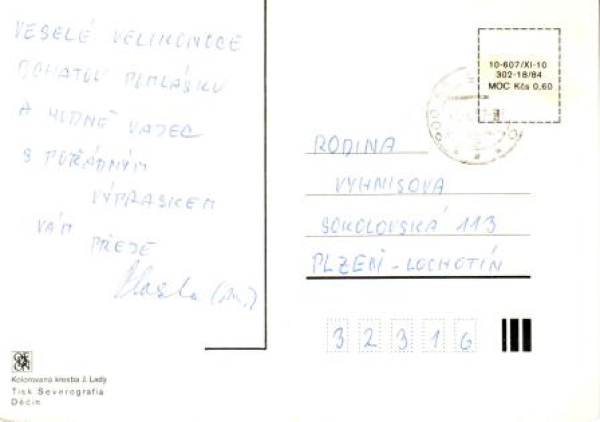 VESELÉ VELIKONOCE
BOHATOU POMLÁSKU
A HODNĚ VAJEC
S POŘÁDNÝM
VÝPRASKEM
VÁM
PŘEJE
10-607/XI-10
302-18/84
MOC Kčs 0,60
RODINA
VYHNISOVA
SOKOLOVSKÁ 113
PLZEŇ - LOCHOTÍN
32316
Kolorovaná kresba J. Lady
Tisk Severografia
Děčín